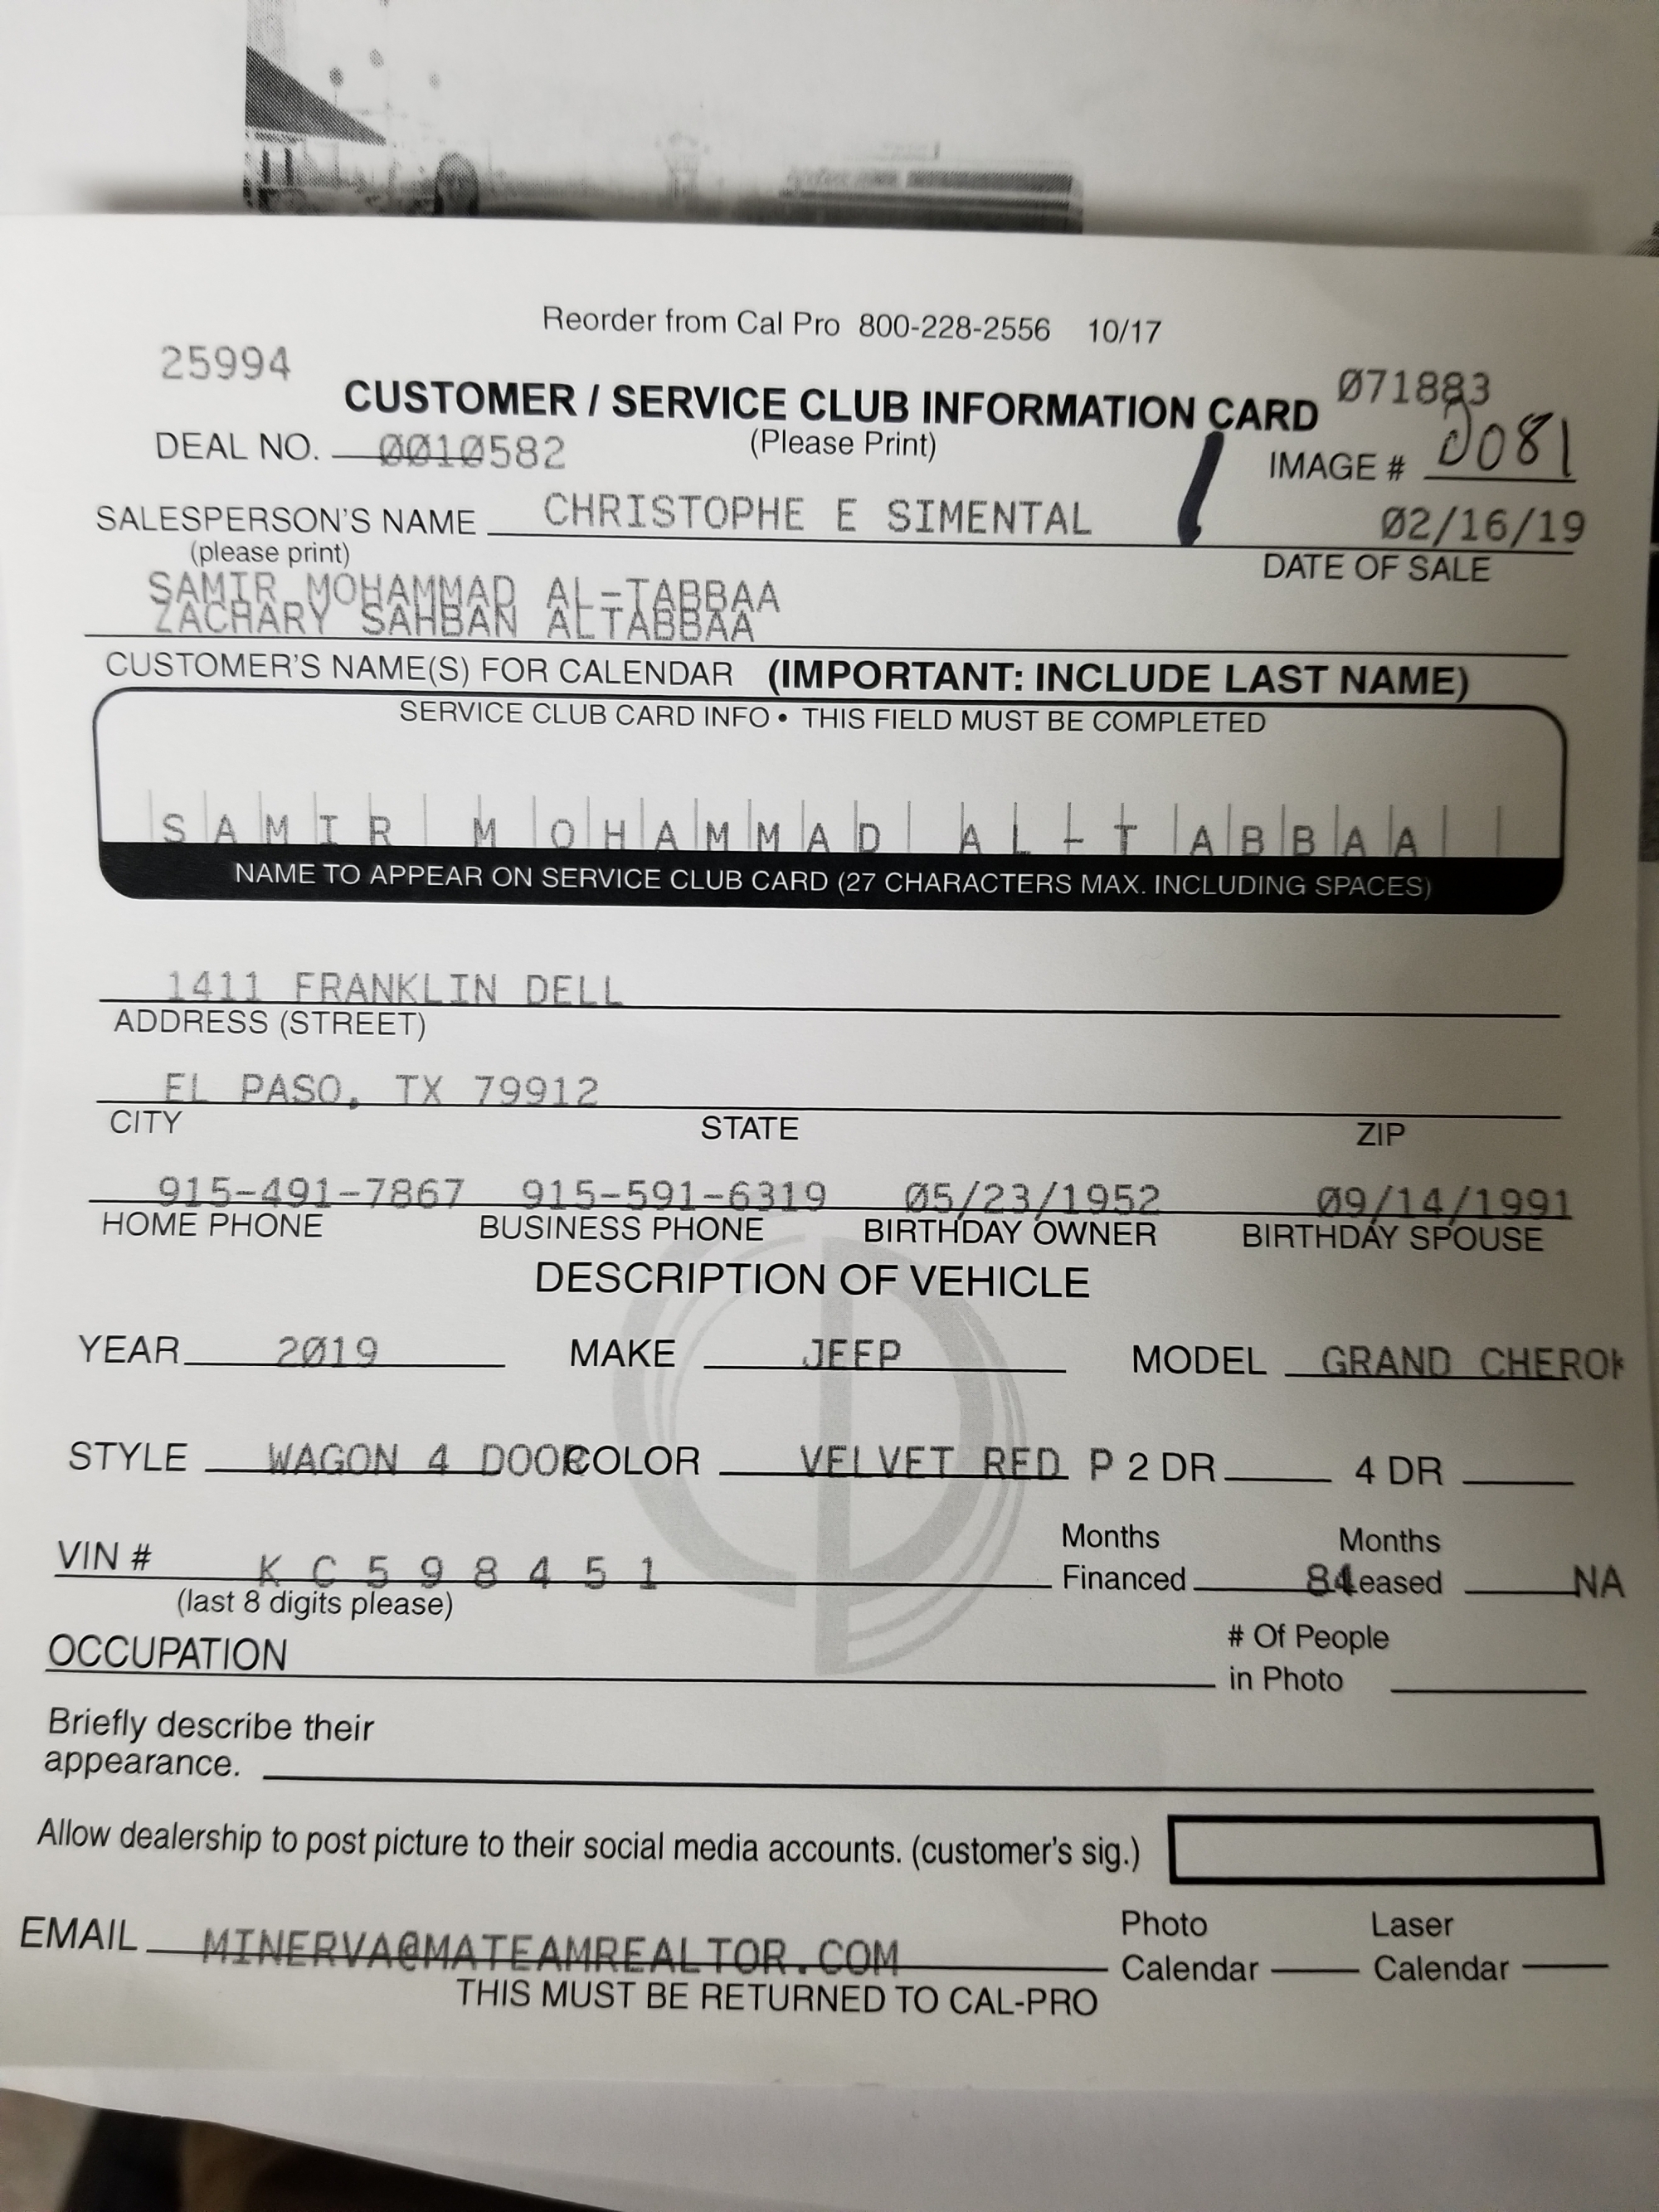 Reorder from Cal Pro 800-228-2556 10/17
25994
071883
CUSTOMER / SERVICE CLUB INFORMATION CARD
(Please Print)
DEAL NO. 0010582
IMAGE # 0081
SALESPERSON'S NAME CHRISTOPHE E SIMENTAL 02/16/19
(please print) DATE OF SALE
SAMIR MOHAMMAD AL-TABBAA
ZACHARY SAHBAN ALTABBAA
CUSTOMER'S NAME(S) FOR CALENDAR (IMPORTANT: INCLUDE LAST NAME)
SERVICE CLUB CARD INFO • THIS FIELD MUST BE COMPLETED
SAMIR MOHAMMAD AL-TABBAA
NAME TO APPEAR ON SERVICE CLUB CARD (27 CHARACTERS MAX. INCLUDING SPACES)
1411 FRANKLIN DELL
ADDRESS (STREET)
EL PASO, TX 79912
CITY STATE ZIP
915-491-7867 915-591-6319 05/23/1952 09/14/1991
HOME PHONE BUSINESS PHONE BIRTHDAY OWNER BIRTHDAY SPOUSE
DESCRIPTION OF VEHICLE
YEAR 2019 MAKE JEEP MODEL GRAND CHEROK
STYLE WAGON 4 DOOR COLOR VELVET RED P 2 DR 4 DR
VIN # K C 5 9 8 4 5 1
(last 8 digits please)
Months Financed 84 Months Leased NA
OCCUPATION
# Of People in Photo
Briefly describe their
appearance.
Allow dealership to post picture to their social media accounts. (customer's sig.)
EMAIL MINERVA@MATEAMREALTOR.COM
Photo Calendar Laser Calendar
THIS MUST BE RETURNED TO CAL-PRO